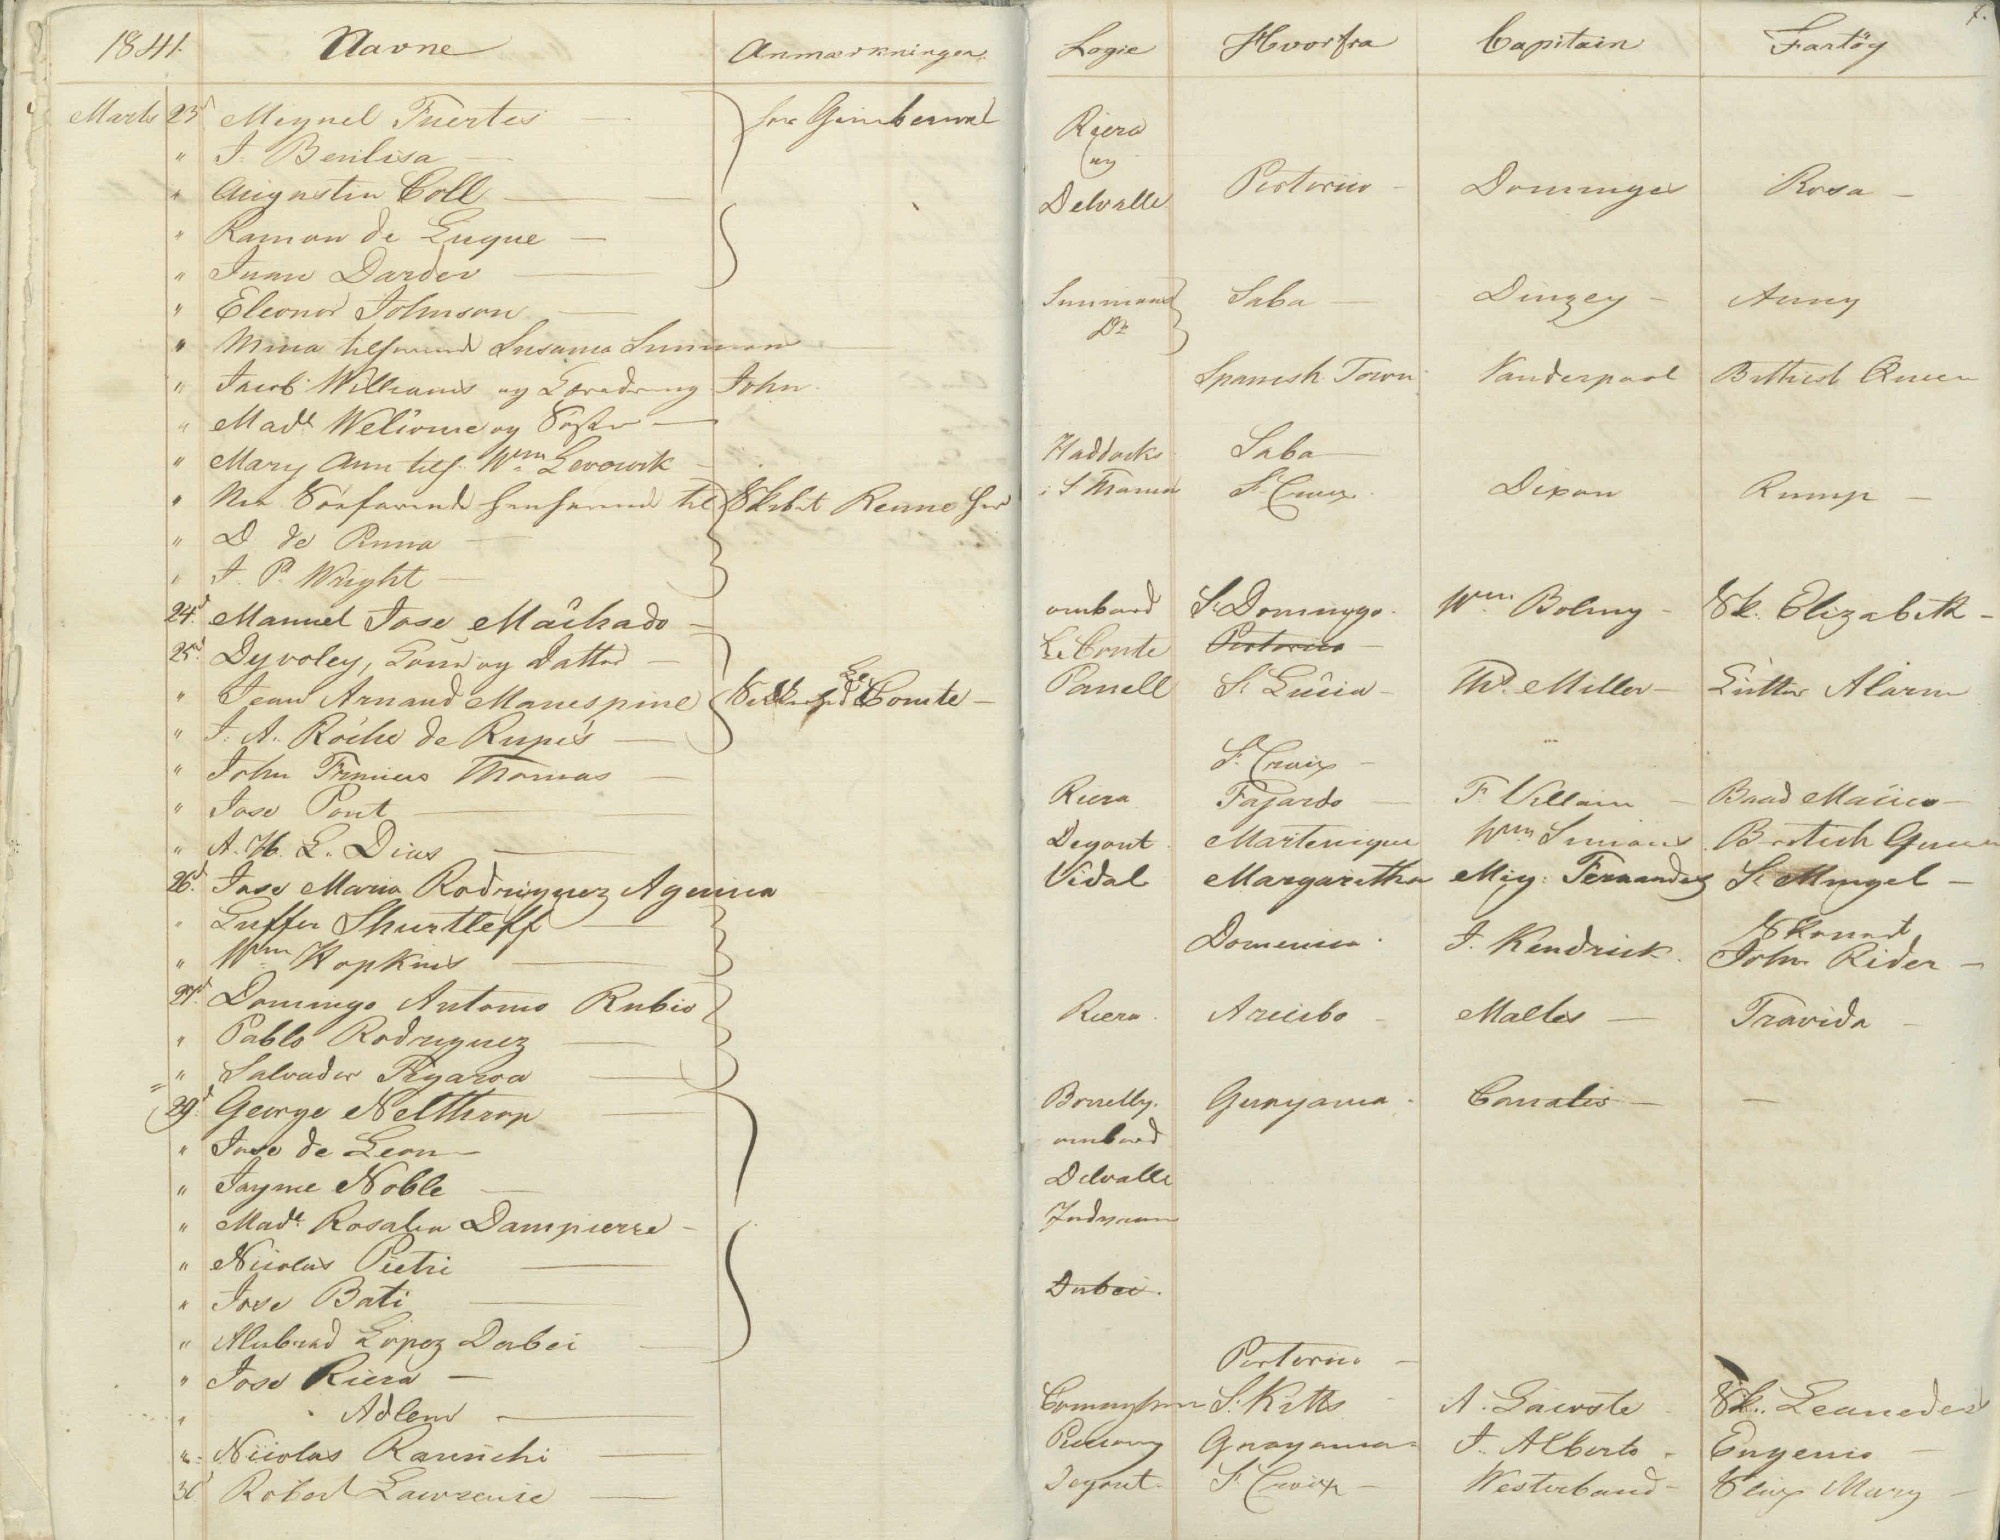 1841. Navne Anmærkninger. Logie Hvorfra Capitain Fartöy 7.
Marts 23d Miguel Fuertes — hos Gimbernat Riera
" J. Benlisa — og
" Augustin Coll — Delvalle Portorico - Dominges Rosa —
" Ramon de Luque —
" Juan Darder —
" Eleonor Johnson — Simmons Saba — Dinzey — Anny
" Mina tilhørende Susanna Simmons — Do
" Jacob Williams og John Spanish Town Vanderpool British Queen
" Made Welcome og Söster —
" Mary Ann tilh. Wm Haddocks Saba —
" Ni Söfarende henhørende til Skibet her i St Thomas St Croix. Dixon Rump —
" D de Runa —
" J. P. Wright —
24d Manuel Jose Maĉhado — ombord St Domingo. Wm Bolmy — Sk. Elizabeth —
25d Dyvoley, Kone og Datter — Le Comte Portorico —
" Jean Arnaud Manespine Le Comte — Panell St Lucia — Ths. Miller — Cutter Alarm
" J. A. Roche de Rupés —
" John Francies Thomas — St Croix —
" Jose Pont — Riera Fajardo — F. Villain — Baad
" A. H. L. Dias — Degout Martenique Wm Simons. British Queen
26d Jose Maria Rodriguez Agencia Vidal Margaritha Mig. Fernandez St Miguel —
" Luffer Shurtleff — Skonnert
" Wm Hopkins — Domenica. J. Kendrick. John Rider —
27d Domingo Antonio Rubio Riera. Arecibo — Maltes — Travida —
" Pablo Rodriguez —
" Salvador Figaroa —
29d George Nelthrop Bonelly. Guayama. Canales — —
" Jose de Leon — ombord
" Jayme Noble — Delvalle
" Made. Rosalia Dampierre —
" Nicolas Pietri —
" Jose Bati — Dubei.
" Lopez Dubei —
" Jose Riera — Portorico —
" Adlem — St Kitts A. Lacoste Sk.
" Nicolas Raunchi — Guayama. J. Alberto. Eugenio —
30d Robert Lawrence — Degout. St Croix — Westerband — Mary —